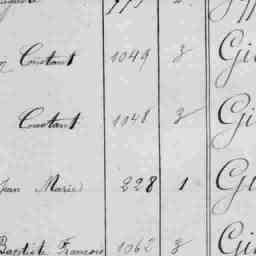 Constant 1049 3 Gi
Constant 1048 3 Gi
Jean Marie 228 1 Gi
Baptiste Francois 1062 3 Gi